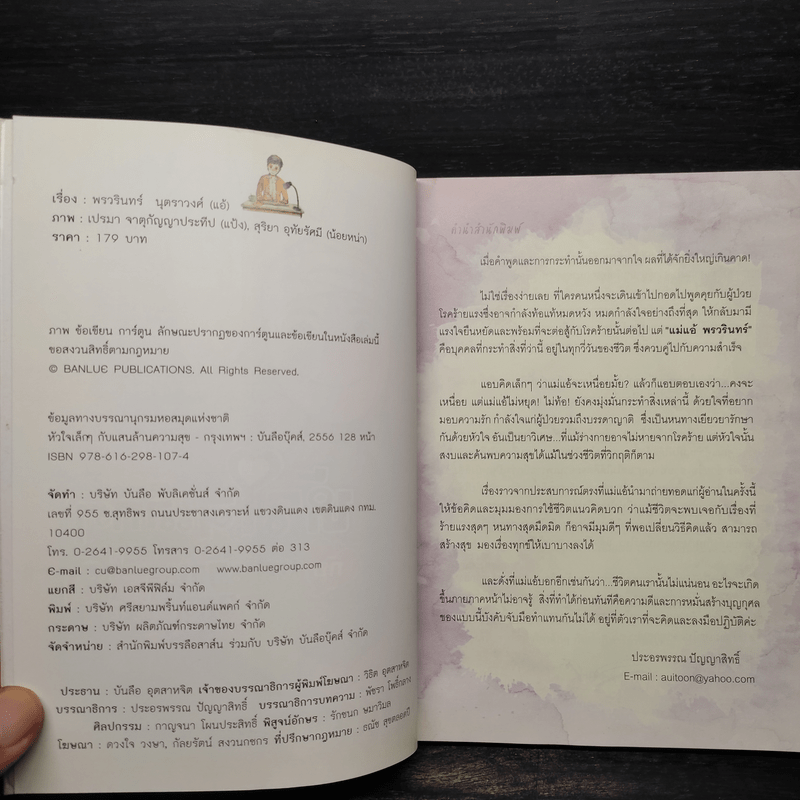 เรื่อง : พรวรินทร์ นุตราวงศ์ (แอ้)
ภาพ : เปรมา จาตุกัญญาประทีป (แป้ง), สุริยา อุทัยรัศมี (น้อยหน่า)
ราคา : 179 บาท
ภาพ ข้อเขียน การ์ตูน ลักษณะปรากฏของการ์ตูนและข้อเขียนในหนังสือเล่มนี้
ขอสงวนสิทธิ์ตามกฎหมาย
© BANLUE PUBLICATIONS. All Rights Reserved.
ข้อมูลทางบรรณานุกรมหอสมุดแห่งชาติ
หัวใจเล็กๆ กับแสนล้านความสุข - กรุงเทพฯ : บันลือบุ๊คส์, 2556 128 หน้า
ISBN 978-616-298-107-4
จัดทำ : บริษัท บันลือ พับลิเคชั่นส์ จำกัด
เลขที่ 955 ซ.สุทธิพร ถนนประชาสงเคราะห์ แขวงดินแดง เขตดินแดง กทม.
10400
โทร. 0-2641-9955 โทรสาร 0-2641-9955 ต่อ 313
E-mail : cu@banluegroup.com www.banluegroup.com
แยกสี : บริษัท เอสจีพีฟิล์ม จำกัด
พิมพ์ : บริษัท ศรีสยามพริ้นท์แอนด์แพคก์ จำกัด
กระดาษ : บริษัท ผลิตภัณฑ์กระดาษไทย จำกัด
จัดจำหน่าย : สำนักพิมพ์บรรลือสาส์น ร่วมกับ บริษัท บันลือบุ๊คส์ จำกัด
ประธาน : บันลือ อุตสาหจิต เจ้าของบรรณาธิการผู้พิมพ์โฆษณา : วิธิต อุตสาหจิต
บรรณาธิการ : ประอรพรรณ ปัญญาสิทธิ์ บรรณาธิการบทความ : พัชรา โพธิ์กลาง
ศิลปกรรม : กาญจนา โผนประสิทธิ์ พิสูจน์อักษร : รักชนก ษมาวิมล
โฆษณา : ดวงใจ วงษา, กัลยรัตน์ สงวนกชกร ที่ปรึกษากฎหมาย : ธณัช สุขตลอดปี
คำนำสำนักพิมพ์
เมื่อคำพูดและการกระทำนั้นออกมาจากใจ ผลที่ได้จักยิ่งใหญ่เกินคาด!
ไม่ใช่เรื่องง่ายเลย ที่ใครคนหนึ่งจะเดินเข้าไปกอดไปพูดคุยกับผู้ป่วย
โรคร้ายแรงซึ่งอาจกำลังท้อแท้หมดหวัง หมดกำลังใจอย่างถึงที่สุด ให้กลับมามี
แรงใจยืนหยัดและพร้อมที่จะต่อสู้กับโรคร้ายนั้นต่อไป แต่ "แม่แอ้ พรวรินทร์"
คือบุคคลที่กระทำสิ่งที่ว่านี้ อยู่ในทุกวี่วันของชีวิต ซึ่งควบคู่ไปกับความสำเร็จ
แอบคิดเล็กๆ ว่าแม่แอ้จะเหนื่อยมั้ย? แล้วก็แอบตอบเองว่า...คงจะ
เหนื่อย แต่แม่แอ้ไม่หยุด! ไม่ท้อ! ยังคงมุ่งมั่นกระทำสิ่งเหล่านี้ ด้วยใจที่อยาก
มอบความรัก กำลังใจแก่ผู้ป่วยรวมถึงบรรดาญาติ ซึ่งเป็นหนทางเยียวยารักษา
กันด้วยหัวใจ อันเป็นยาวิเศษ...ที่แม้ร่างกายอาจไม่หายจากโรคร้าย แต่หัวใจนั้น
สงบและค้นพบความสุขได้แม้ในช่วงชีวิตที่วิกฤติก็ตาม
เรื่องราวจากประสบการณ์ตรงที่แม่แอ้นำมาถ่ายทอดแก่ผู้อ่านในครั้งนี้
ให้ข้อคิดและมุมมองการใช้ชีวิตแนวคิดบวก ว่าแม้ชีวิตจะพบเจอกับเรื่องที่
ร้ายแรงสุดๆ หนทางสุดมืดมิด ก็อาจมีมุมดีๆ ที่พอเปลี่ยนวิธีคิดแล้ว สามารถ
สร้างสุข มองเรื่องทุกข์ให้เบาบางลงได้
และดั่งที่แม่แอ้บอกอีกเช่นกันว่า...ชีวิตคนเรานั้นไม่แน่นอน อะไรจะเกิด
ขึ้นภายภาคหน้าไม่อาจรู้ สิ่งที่ทำได้ก่อนทันทีคือความดีและการหมั่นสร้างบุญกุศล
ของแบบนี้บังคับจับมือทำแทนกันไม่ได้ อยู่ที่ตัวเราที่จะคิดและลงมือปฏิบัติค่ะ
ประอรพรรณ ปัญญาสิทธิ์
E-mail : auitoon@yahoo.com